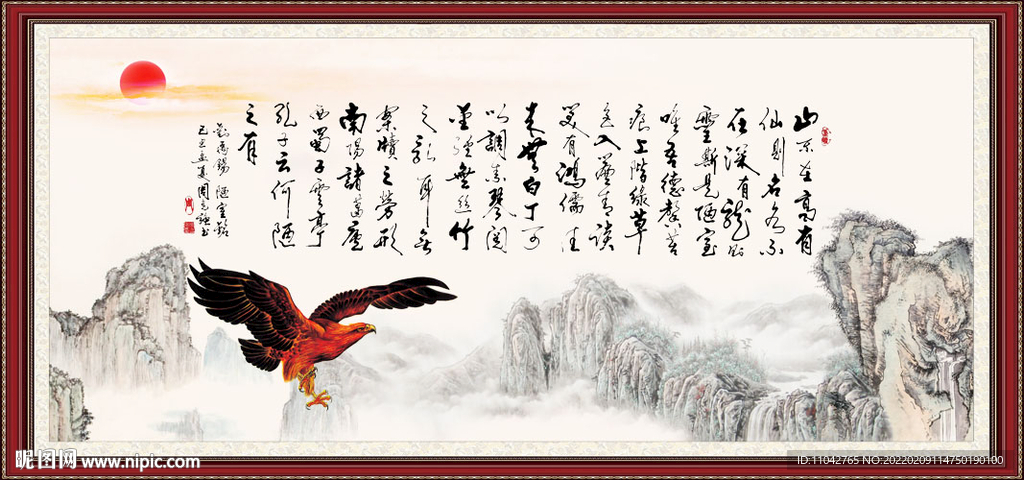 山不在高有
仙則名水不
在深有龍則
靈斯是陋室
唯吾德馨苔
痕上階緑草
色入簾青談
笑有鴻儒往
来無白丁可
以調素琴閱
金經無絲竹
之亂耳無
案牘之勞形
南陽諸葛廬
西蜀子雲亭
孔子云何陋
之有
劉禹錫 陋室銘
昵图网 www.nipic.com
ID:11042765 NO:20220209114750190100